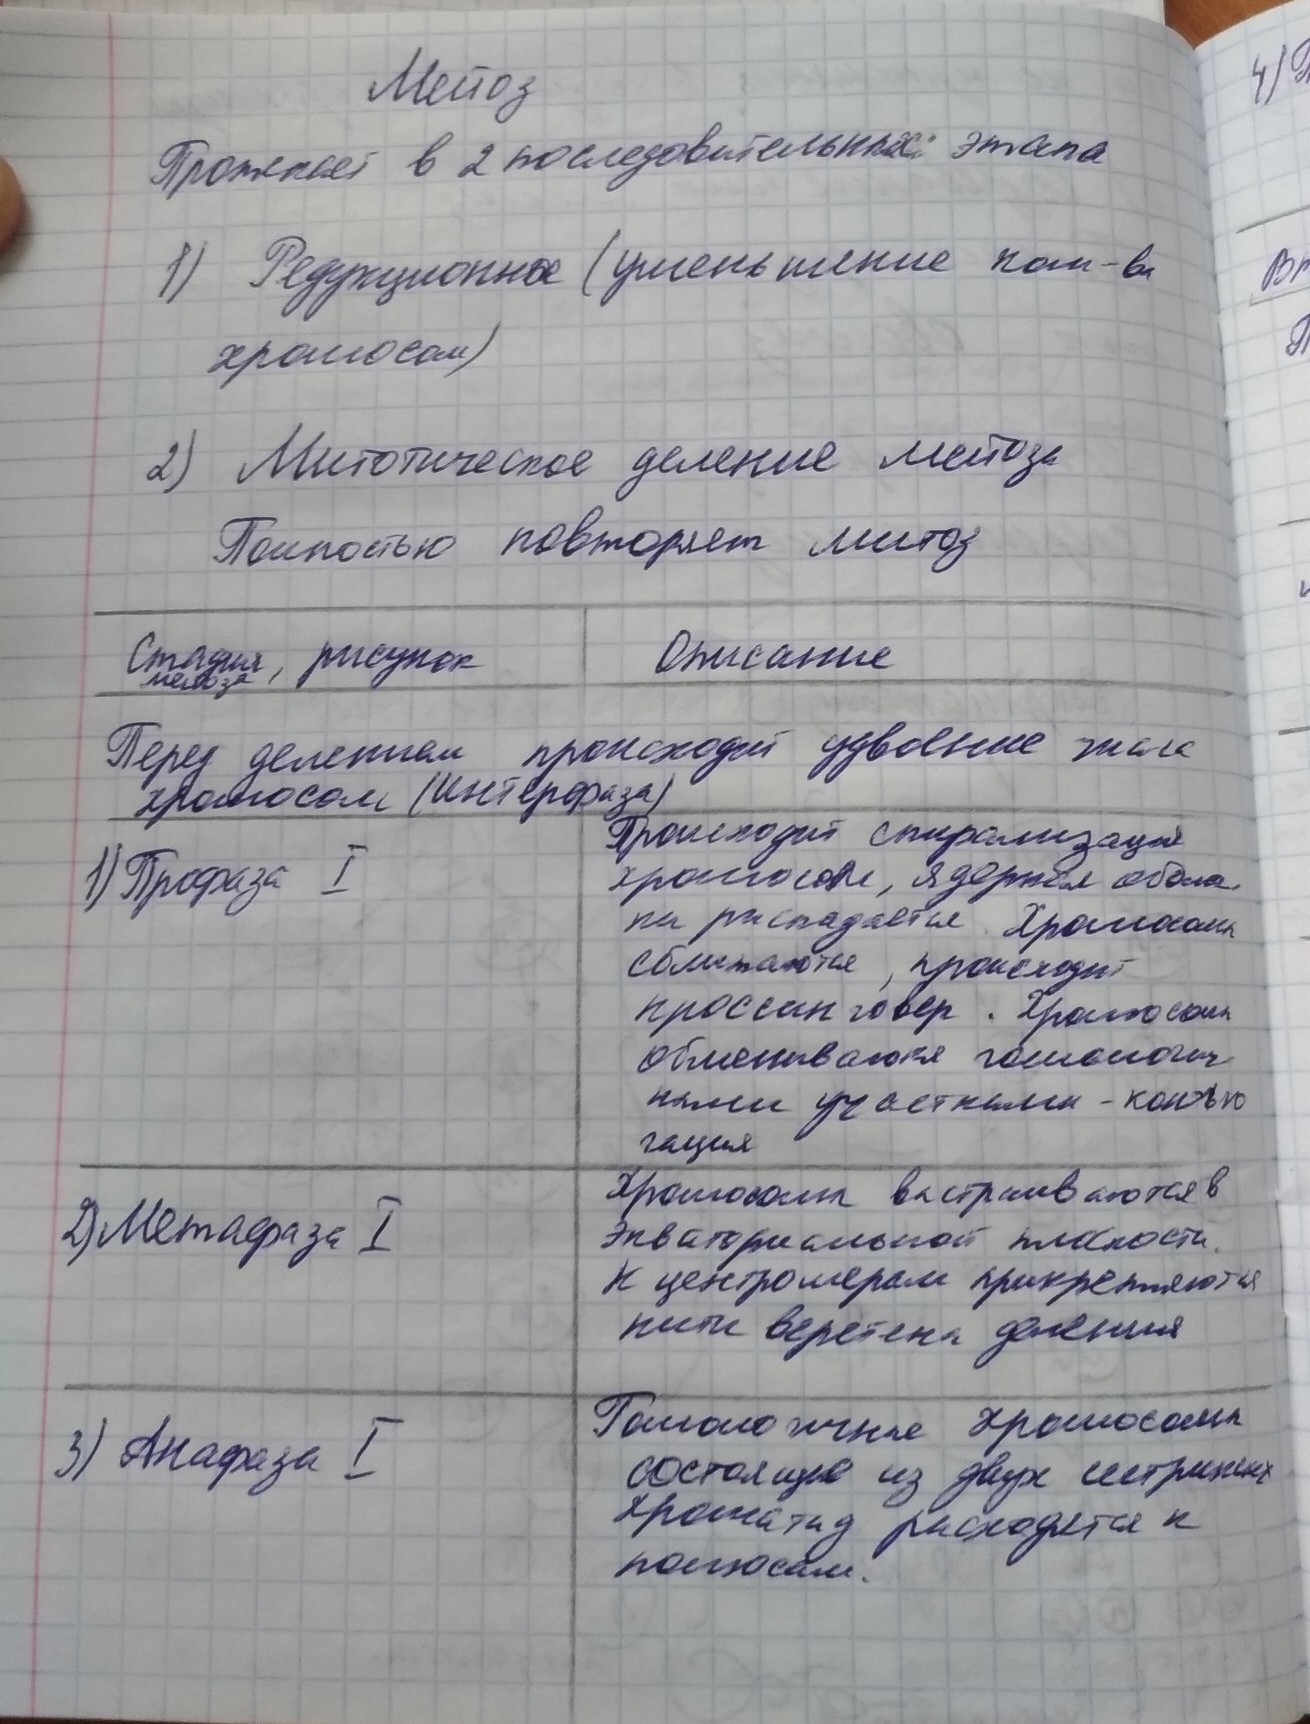 Мейоз
Протекает в 2 последовательных этапа
1) Редукционное (уменьшение кол-ва
хромосом)
2) Митотическое деление мейоза
Полностью повторяет митоз
Стадия, рисунок
мейоза
Описание
Перед делением происходит удвоение числа
хромосом (интерфаза)
1) Профаза I
Происходит спирализация
хромосом, ядерная оболоч
ка распадается. Хромосомы
сближаются, происходит
кроссинговер. Хромосомы
обмениваются гомологич
ными участками - конъю
гация
2) Метафаза I
Хромосомы выстраиваются в
экваториальной плоскости.
К центромерам прикрепляются
нити веретена деления
3) Анафаза I
Гомологичные хромосомы
состоящие из двух сестринских
хроматид расходятся к
полюсам.
4)
П